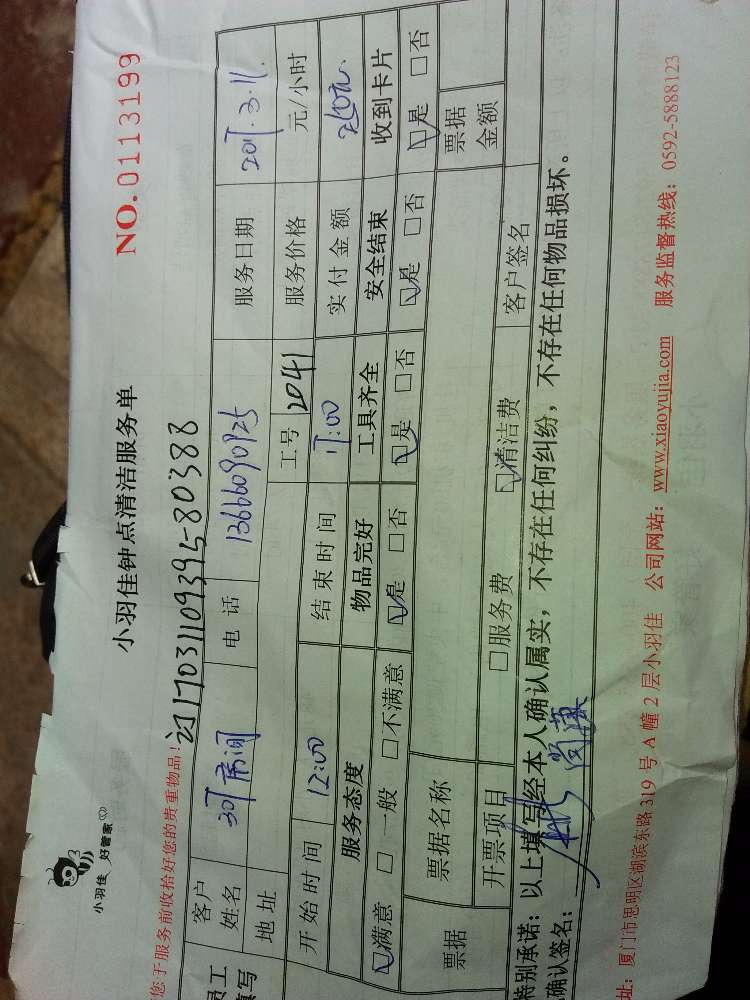 小羽佳 好管家
小羽佳钟点清洁服务单
NO.0113199
您于服务前收拾好您的贵重物品！
订1703110939580388
员工填写
客户姓名
电话 13666090925
服务日期 2017.3.11.
地址
工号 2041
服务价格 元/小时
开始时间 12:00
结束时间 17:00
实付金额
服务态度 物品完好 工具齐全 安全结束 收到卡片
☑满意 □一般 □不满意 ☑是 □否 ☑是 □否 ☑是 □否 ☑是 □否
票据 票据名称 票据金额
开票项目 □服务费 ☑清洁费 客户签名
特别承诺：以上填写经本人确认属实，不存在任何纠纷，不存在任何物品损坏。
确认签名：
址：厦门市思明区湖滨东路 319 号 A 幢 2 层小羽佳 公司网站：www.xiaoyujia.com 服务监督热线：0592-5888123